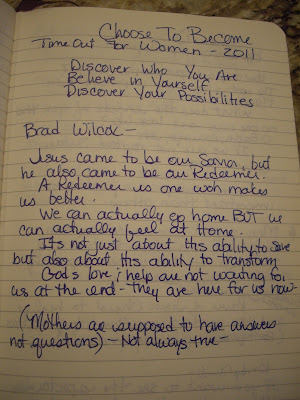 Choose To Become
Time Out For Women - 2011
Discover Who You Are
Believe in Yourself
Discover Your Possibilities
Brad Wilcox -
Jesus came to be our Savior, but
he also came to be our Redeemer.
A Redeemer is one woh makes
us better.
We can actually go home BUT we
can actually feel at Home.
It's not just about His ability to save
but also about His ability to transform
God's love & help are not waiting for
us at the end - they are here for us now -
(Mothers are supposed to have answers
not questions) - Not always true -